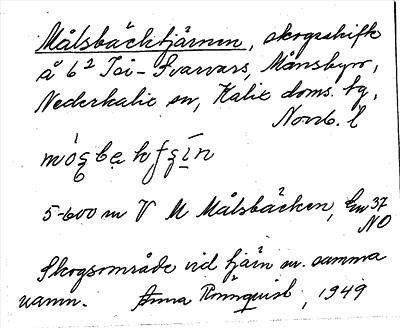 Målsbäcktjärnen, skogsskifte
å 6² Joi-Svarvars, Månsbyn,
Nederkalix sn, Kalix doms. hg,
Norrb. l
5-600 m V M Målsbäcken, Ew 37
NO
Skogsområde vid tjärn m. samma
namn. Anna Rönnquist, 1949